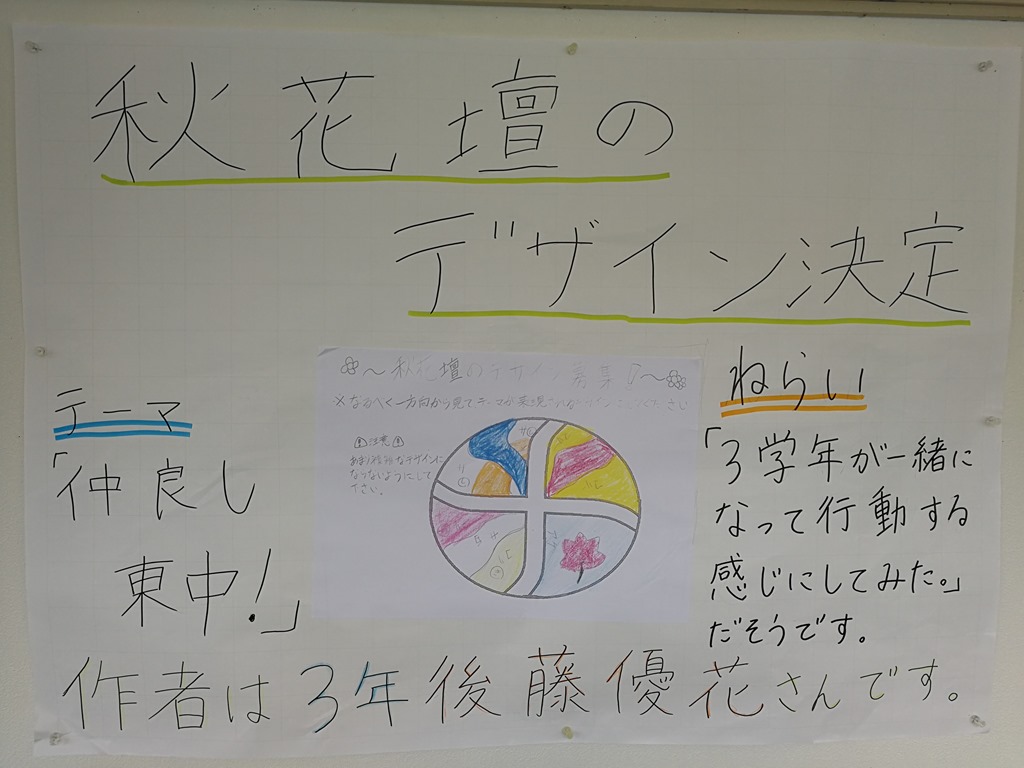 秋花壇の
デザイン決定
テーマ
「仲良し
東中!」
〜秋花壇のデザイン募集〜
※なるべく一方向から見てテーマが表現される
注意
あまり複雑なデザインに
ならないようにして
下さい。
ねらい
「3学年が一緒に
なって行動する
感じにしてみた。」
だそうです。
作者は3年後藤優花さんです。